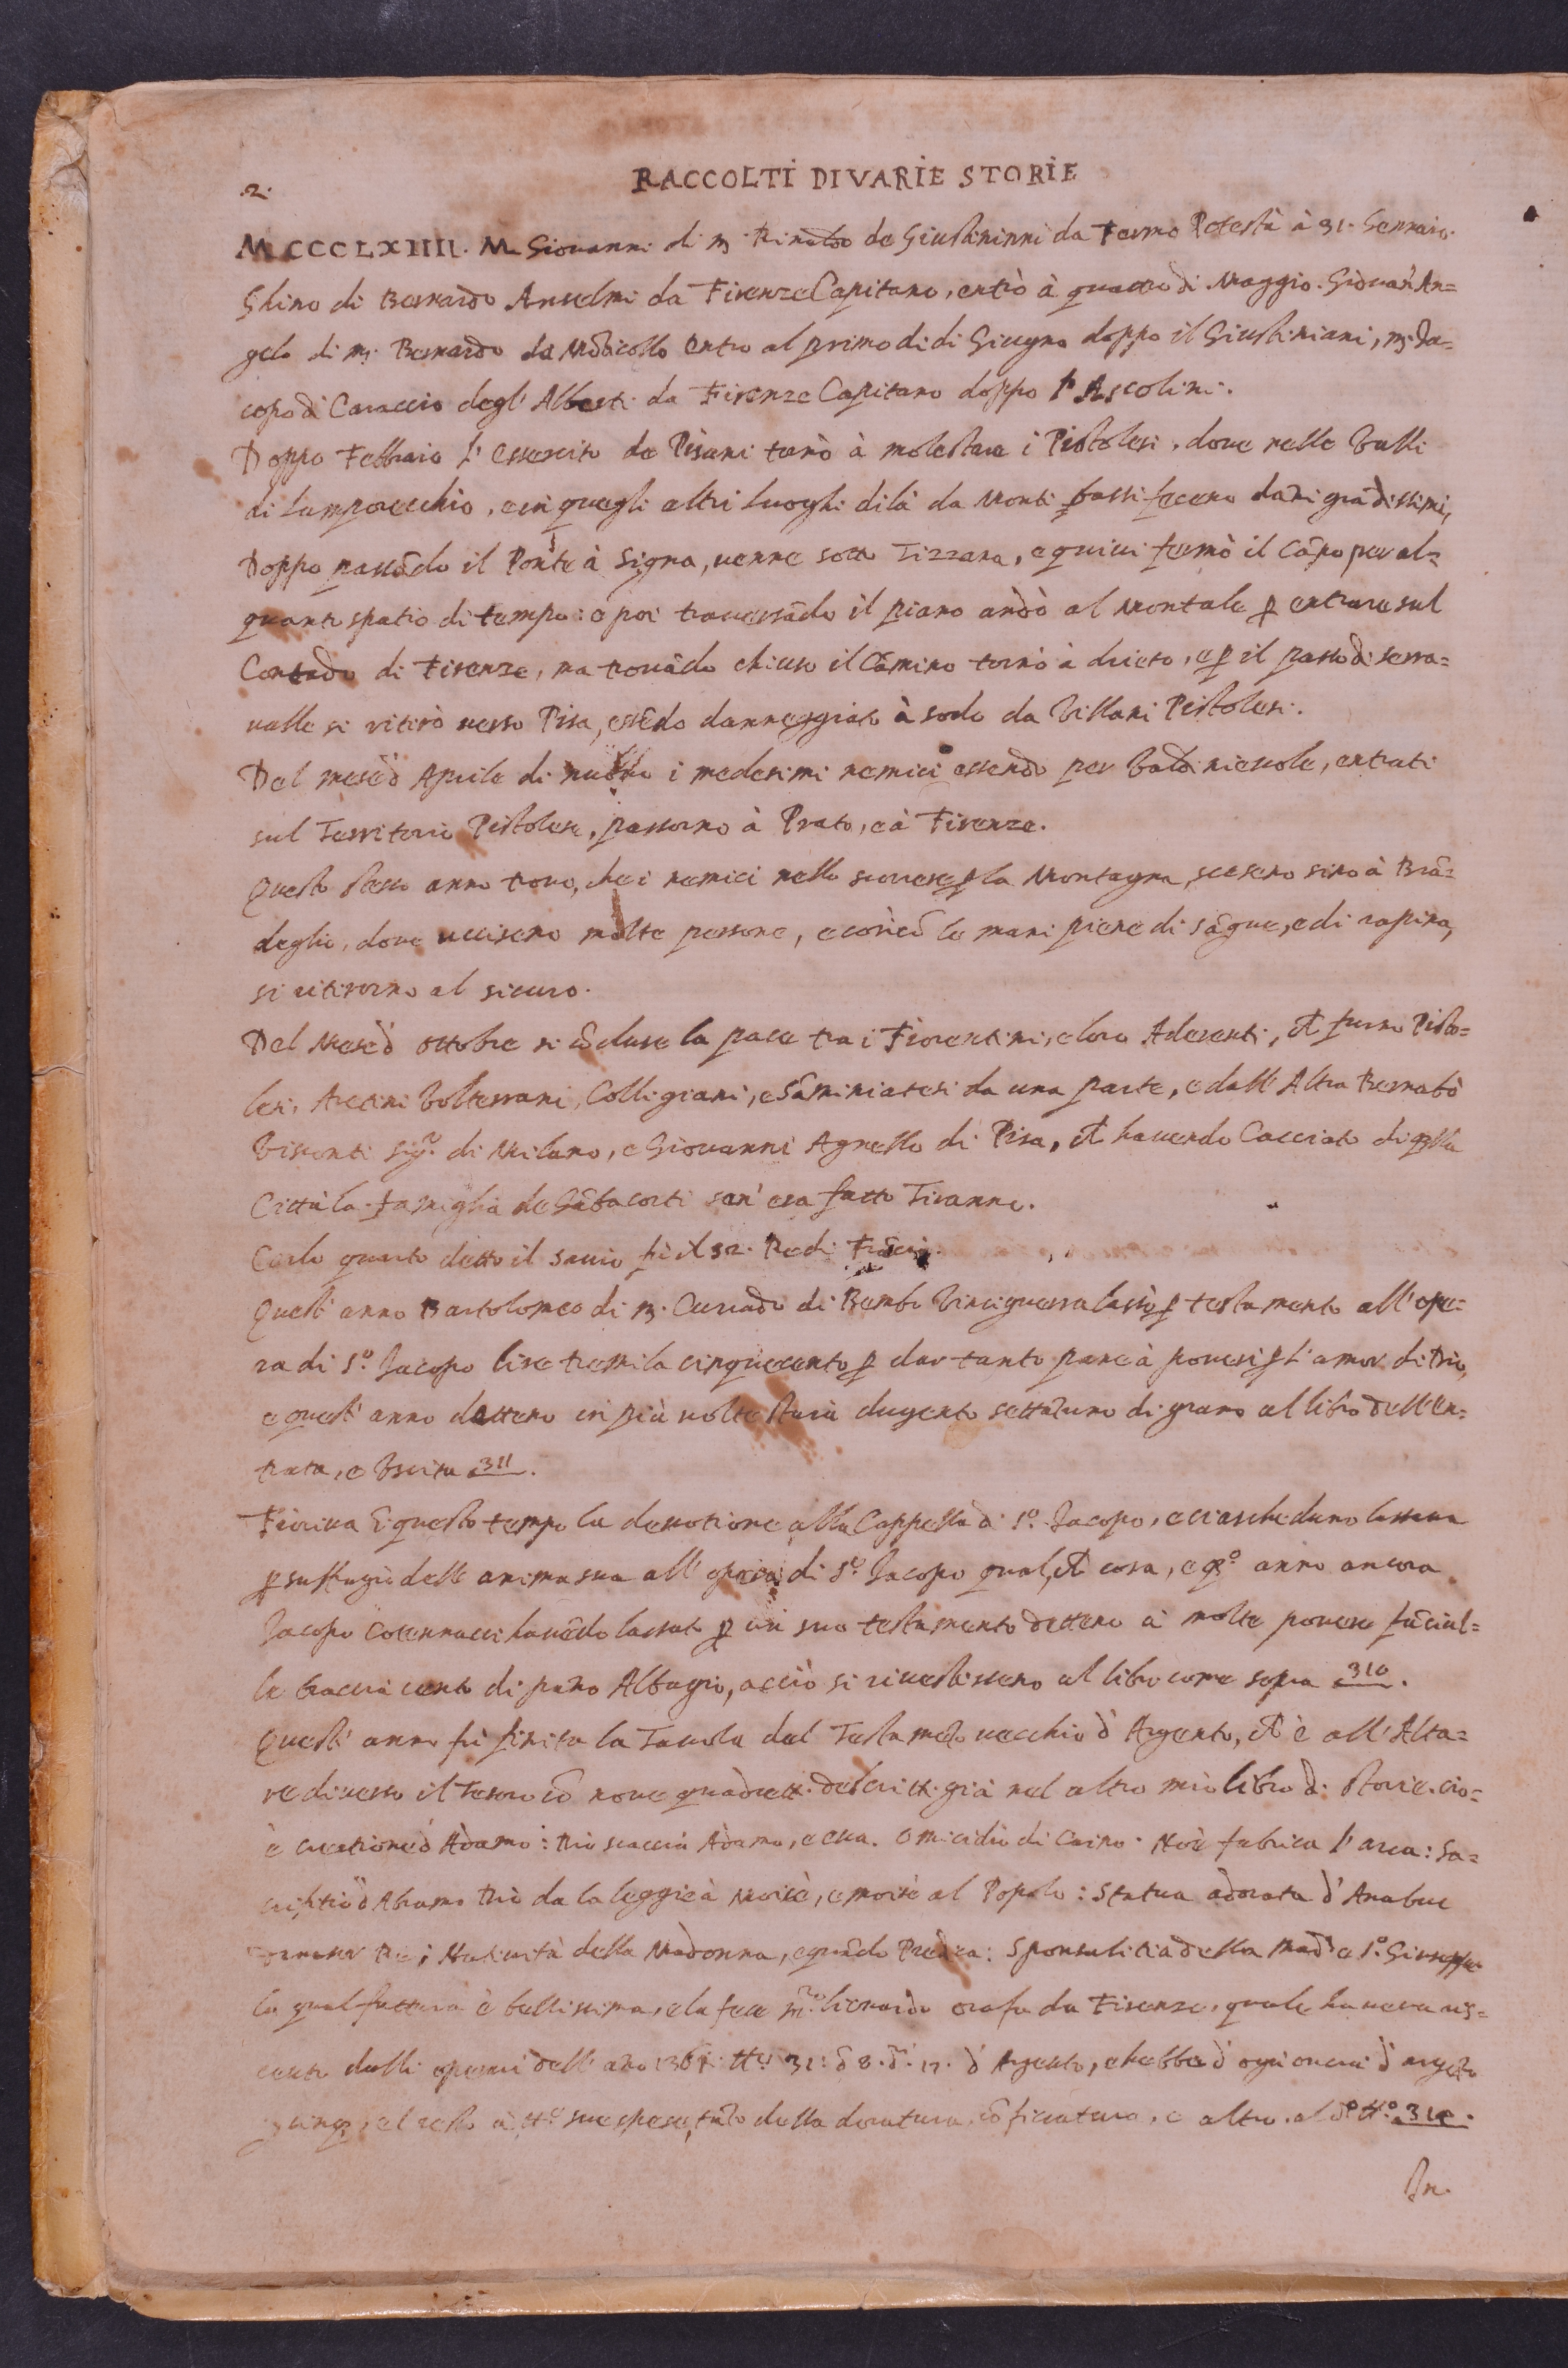 .2.
RACCOLTI DI VARIE STORIE
MCCCLXIIII. M. Giovanni di m. Rinaldo de Giustininni da Fermo Potestà à 31. Gennaio.
Ghino di Bernardo Anselmi da Firenze Capitano, entrò à quattro di Maggio. Giovan'An=
gelo di m. Bernardo da Mõticollo entro al primo di di Giugno doppo il Giustiniani, m. Ja=
copo di Caroccio degl'Alberti da Firenze Capitano doppo l'Ascolini.
Doppo Febbraio l'essercito de Pisani tornò à molestare i Pistolesi, dove nelle Valli
di Lamporecchio, e in quegli altri luoghi di là da Monti bassi fecero dãni grãdissimi,
Doppo passãdo il Ponte à Signa, venne sotto Tizzana, e quivi fermò il Cãpo per al=
quanto spatio di tempo: e poi traversãdo il piano andò al Montale ꝑ entrare sul
Contado di Firenze, ma trovãdo chiuso il Cãmino tornò à drieto, e ꝑ il passo di Serra=
valle si ritirò verso Pisa, essẽdo danneggiato à sodo da Villani Pistolesi.
Del mese d'Aprile di nuovo i medesimi nemici essendo per Valdinievole, entrati
sul Territorio Pistolese, passorno à Prato, e à Firenze.
Questo stesso anno trovo, che i nemici nello scorrere ꝑ la Montagna, scesero sino à Brã=
deglio, dove uccisero molte persone, e così cõ le mani piene di sãgue, e di rapina,
si ritirorno al sicuro.
Del Mese d'Ottobre si cõcluse la pace tra i Fiorentini, e loro Aderenti, ch furno Pisto=
lesi, Aretini Volterrani, Colligiani, e Sãminiatesi da una parte, e dall'Altra Bernabò
Visconti Sigr. di Milano, e Giovanni Agnello di Pisa, ch havendo Cacciato di qlla
Città la famiglia de Gãbacorti sen'era fatto Tiranno.
Carlo quinto detto il Savio fù il 52. Re di Frãcia.
Quest'anno Bartolomeo di m. Currado di Bembo Vinciguerra lassò ꝑ testamento all'ope=
ra di S.o Jacopo lire tremila cinquecento ꝑ dar tanto pane à poveri ꝑ l'amor di Dio,
e quest'anno dettero in più volte staia dugento settãtuno di grano al libro dell'En=
trata, e Uscita 311.
Fioriva ĩ questo tempo la devotione alla Cappella di S.o Jacopo, e ciascheduno lassava
ꝑ suffragio dell'anima sua all'opera di S.o Jacopo qualch cosa, e q.o anno ancora
Jacopo Cocennacci havẽdo lassato ꝑ un suo testamento dettero à molte povere fãciul=
le braccia cento di pãno Albagio, acciò si rivestissero al libro come sopra 310.
Quest'anno fù finita la Tavola del Testamẽto vecchio d'Argento, ch è all'Alta=
re di verso il Tesoro cõ nove quadrett. descritti già nel altro mio libro di Storie. cio=
è creatione d'Adamo: Dio scaccia Adamo, e eva. Omicidio di Caino. Noè fabrica l'arca: Sa=
criftio d'Abramo Dio da la legge à Moisè, e moisè al Popolo: Statua adorata d'Anabuc
Re; Natività della Madonna, e quãdo Predica: Sponsalitia della Mad.a e S.o Giuseppe
la qual fattura è bellissima, e la fece m.ro Lionardo orafo da Firenze, quale haveva ric=
cevuto dalli operai dell'ãno 1361 31: 8. 17. d'Argento, e hebbe d'ogni oncia d'argẽto
el resto à sue spese, tãto della doratura, cõficcatura, e altro. al d.o 310.
In.